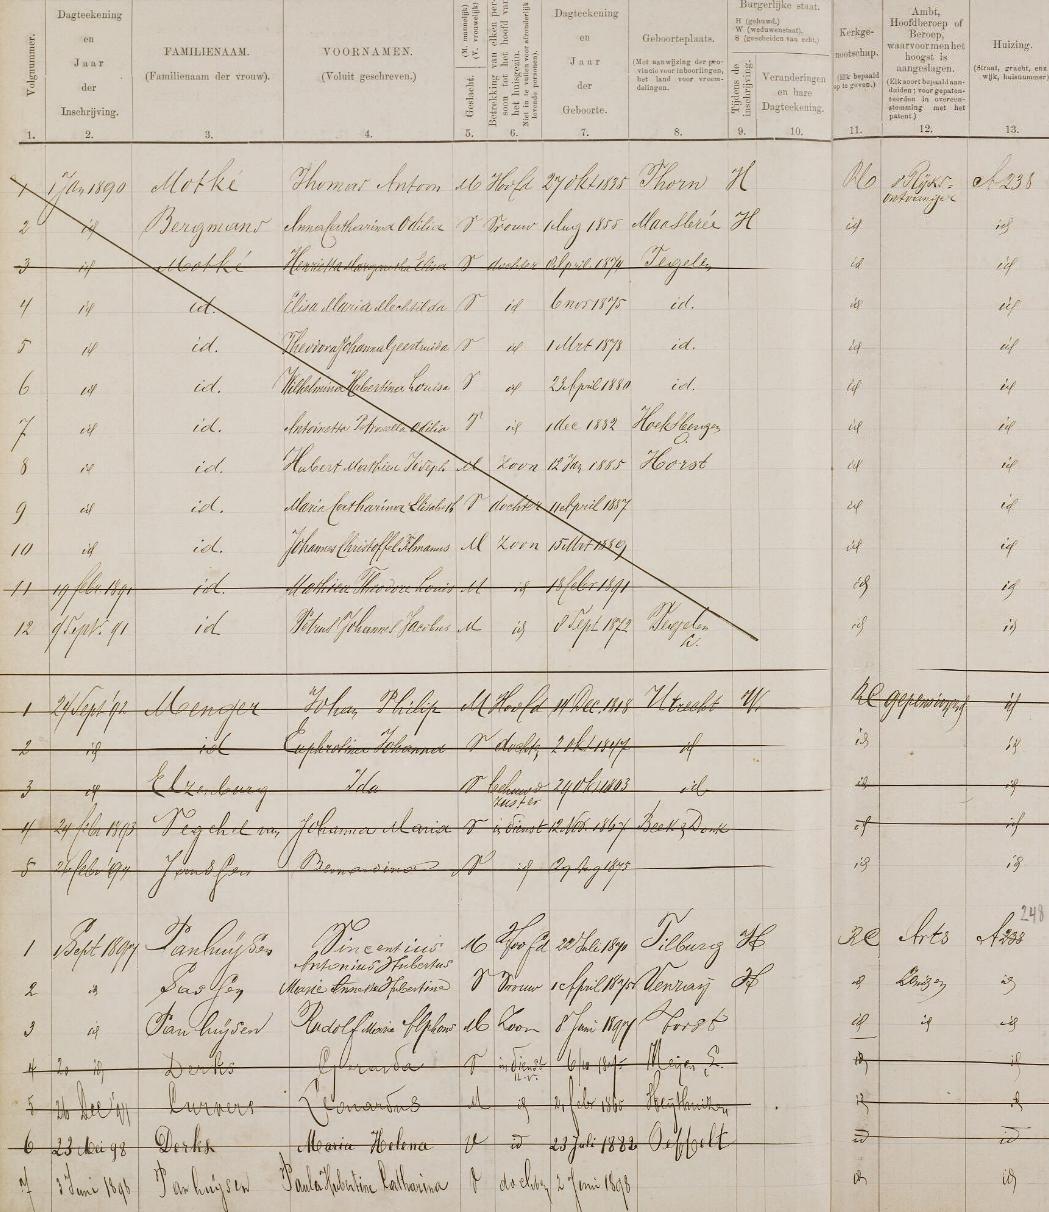 Volgnummer.
Dagteekening en Jaar der Inschrijving.
FAMILIENAAM.
(Familienaam der vrouw).
VOORNAMEN.
(Voluit geschreven.)
Geslacht. (M. mannelijk) (V. vrouwelijk)
Dagteekening en Jaar der Geboorte.
Geboorteplaats.
Burgerlijke staat.
H (gehuwd.)
W (weduwenstaat).
S (gescheiden van echt.)
Tijdens de inschrijving.
Veranderingen en hare Dagteekening.
Kerkge-
nootschap.
Ambt,
Hoofdberoep of
Beroep,
waarvoor men het
hoogst is
aangeslagen.
Huizing.
1. 2. 3. 4. 5. 6. 7. 8. 9. 10. 11. 12. 13.
1 1 Jan 1890 Motké Thomas Antoon M Hoofd 27 Okt 1835 Thorn H RC Rijks- A 238
ontvanger
2 id Bergmans Anna Catharina Odilia V Vrouw 1 Aug 1855 Maasbree H id id
3 id Motké Henrietta Margaretha Elisa V dochter April 1874 Tegelen id id
4 id id. Elisa Maria Mechtilda V id 6 nov 1875 id. id id
5 id id. Theodora Johanna Geertruida V id 1 Mrt 1878 id. id id
6 id id. Wilhelmina Hubertina Louisa V id 23 April 1880 id. id id
7 id id. Antoinetta Petronella Odilia V id 1 dec 1882 id id
8 id id. Hubert Mathieu Joseph M Zoon 12 Jan 1885 Horst id id
9 id id. Maria Catharina Elisabeth V dochter 11 April 1887 id id
10 id id. Johannes Christoffel Tilmanus M Zoon 15 Mrt 1889 id id
11 19 febr. 1891 id. Mathieu Theodore Louis M id 18 febr 1891 id id
12 9 Sept. 91 id Petrus Johannes Jacobus M id 8 Sept 1872 Tegelen id id
1 24 Sept 92 Menger Johan Philip M Hoofd 14 Dec 1818 Utrecht W. RC gepensioneerd id
2 id id Euphrosina Johanna V dochter 2 okt 1847 id id id
3 id Elzenburg Ida V behuwd 29 Okt id id id
zuster
4 24 febr 1893 Seghel van Johanna Maria V in dienst 12 Nov. 1867 Beek & Donk id id
5 febr 94 Janssen Bernardina V id Aug 1875 id id
248
1 1 Sept 1897 Panhuijsen Vincentius M Hoofd 22 Juli 1870 Tilburg H RC Arts A 238
Antonius Hubertus
2 id Passen Maria Hubertina V Vrouw 1 April 1875 Venray H id id
3 id Panhuijsen Rudolf Maria Alphons M Zoon 8 Juni 1897 Horst id id id
4 20 id Derks Gerarda V in dienst id id
5 26 Dec 97 Curvers Leonardus M id febr 1865 Heythuizen id id
6 23 Mei 98 Derks Maria Helena V id 23 Juli 1882 Oeffelt id id
7 3 Juni 1898 Panhuijsen Paula Hubertine Catharina V dochter 2 Juni 1898 id id